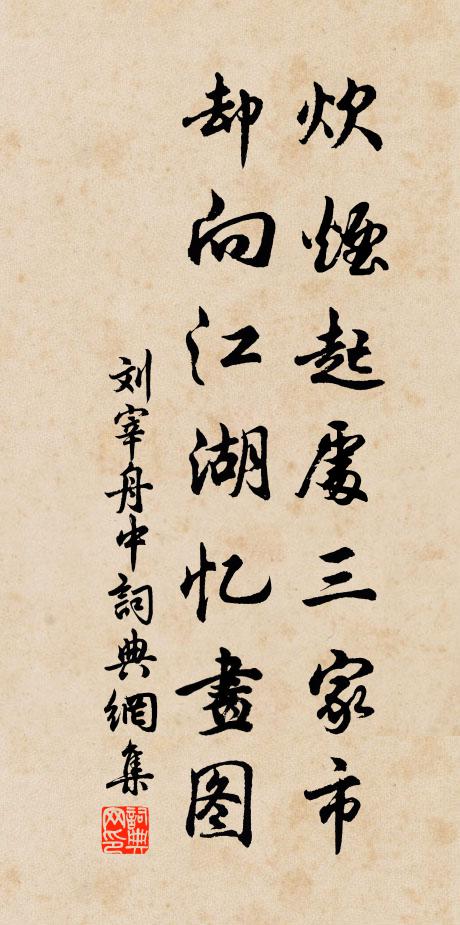 炊煙起處三家市
却向江湖忆畫图
刘宰舟中詞典網集
詞典网印